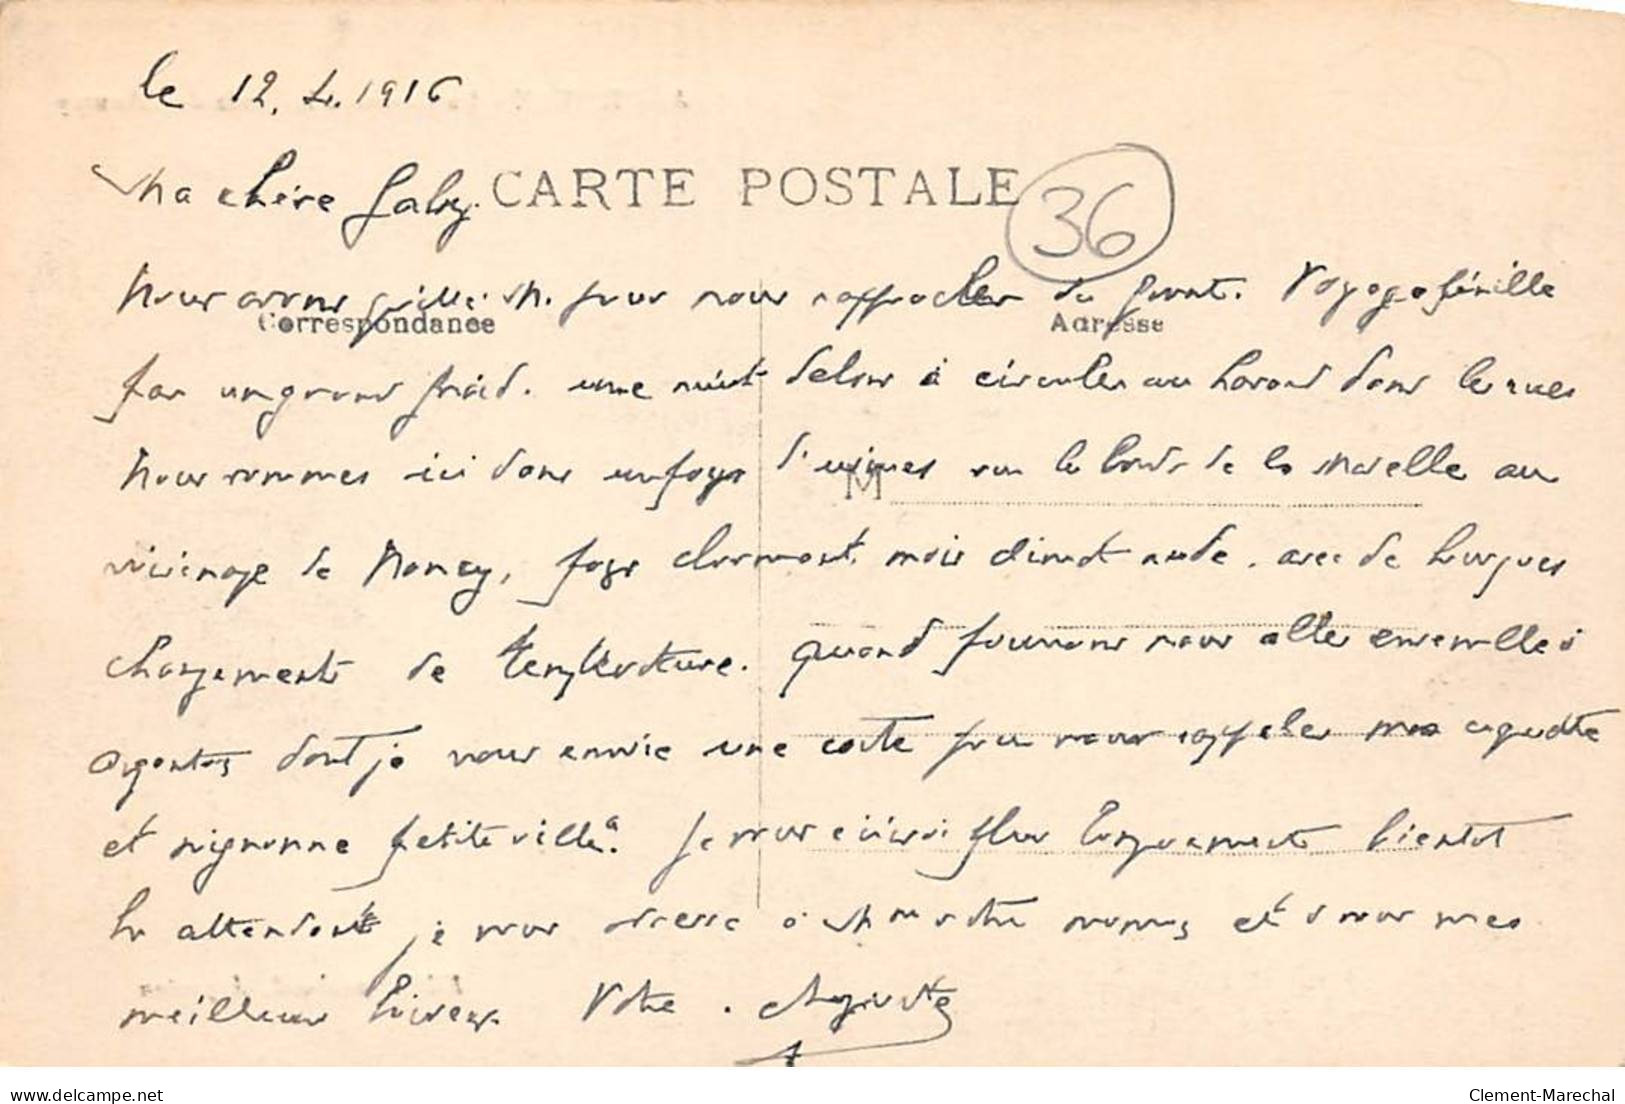 le 12.4.1916
Ma chère Gaby. CARTE POSTALE 36
Nous avons quitté M. pour nous rapprocher du front. Voyage pénible
Correspondance Adresse
par un grand froid. une nuit dehors à circuler au hasard dans les rues
Nous sommes ici dans un pays d'usines sur les bords de la Moselle au
M
voisinage de Nancy, pays charmant mais climat rude. avec de brusques
changements de température. quand pourrons nous aller ensemble à
dont je vous envoie une carte pour vous rappeler
et mignonne petite ville. Je vous écrirai plus longuement bientôt
En attendant je vous adresse à et à vous mes
meilleurs baisers. Votre. Auguste
Clement-Marechal
www.delcampe.net